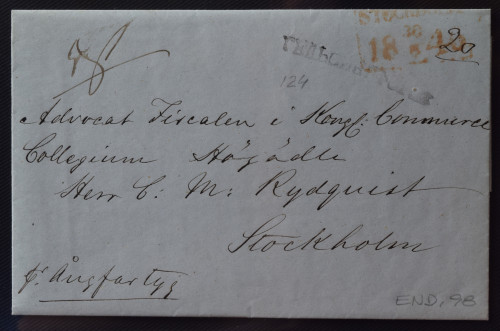 20
18 30 8 4
124
Advocat Fiscalen i Kongl: Commerce
Collegium Högädle
Herr C: M: Rydquist
Stockholm
pr Ångfartyg
END. 98